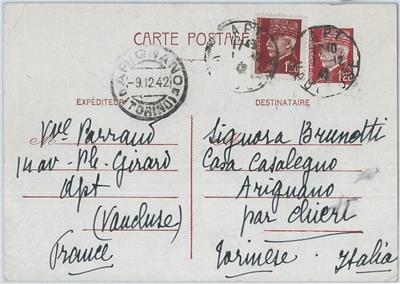 CARTE POSTALE
APT
APT
1F20
1F20
ARIGNANO
-9.12.42
(TORINO)
EXPÉDITEUR
DESTINATAIRE
Vve Parraud
14 av. Ph. Girard
Apt
(Vaucluse)
France
Signora Brunotti
Casa Casalegno
Arignano
par Chieri
Torinese - Italia